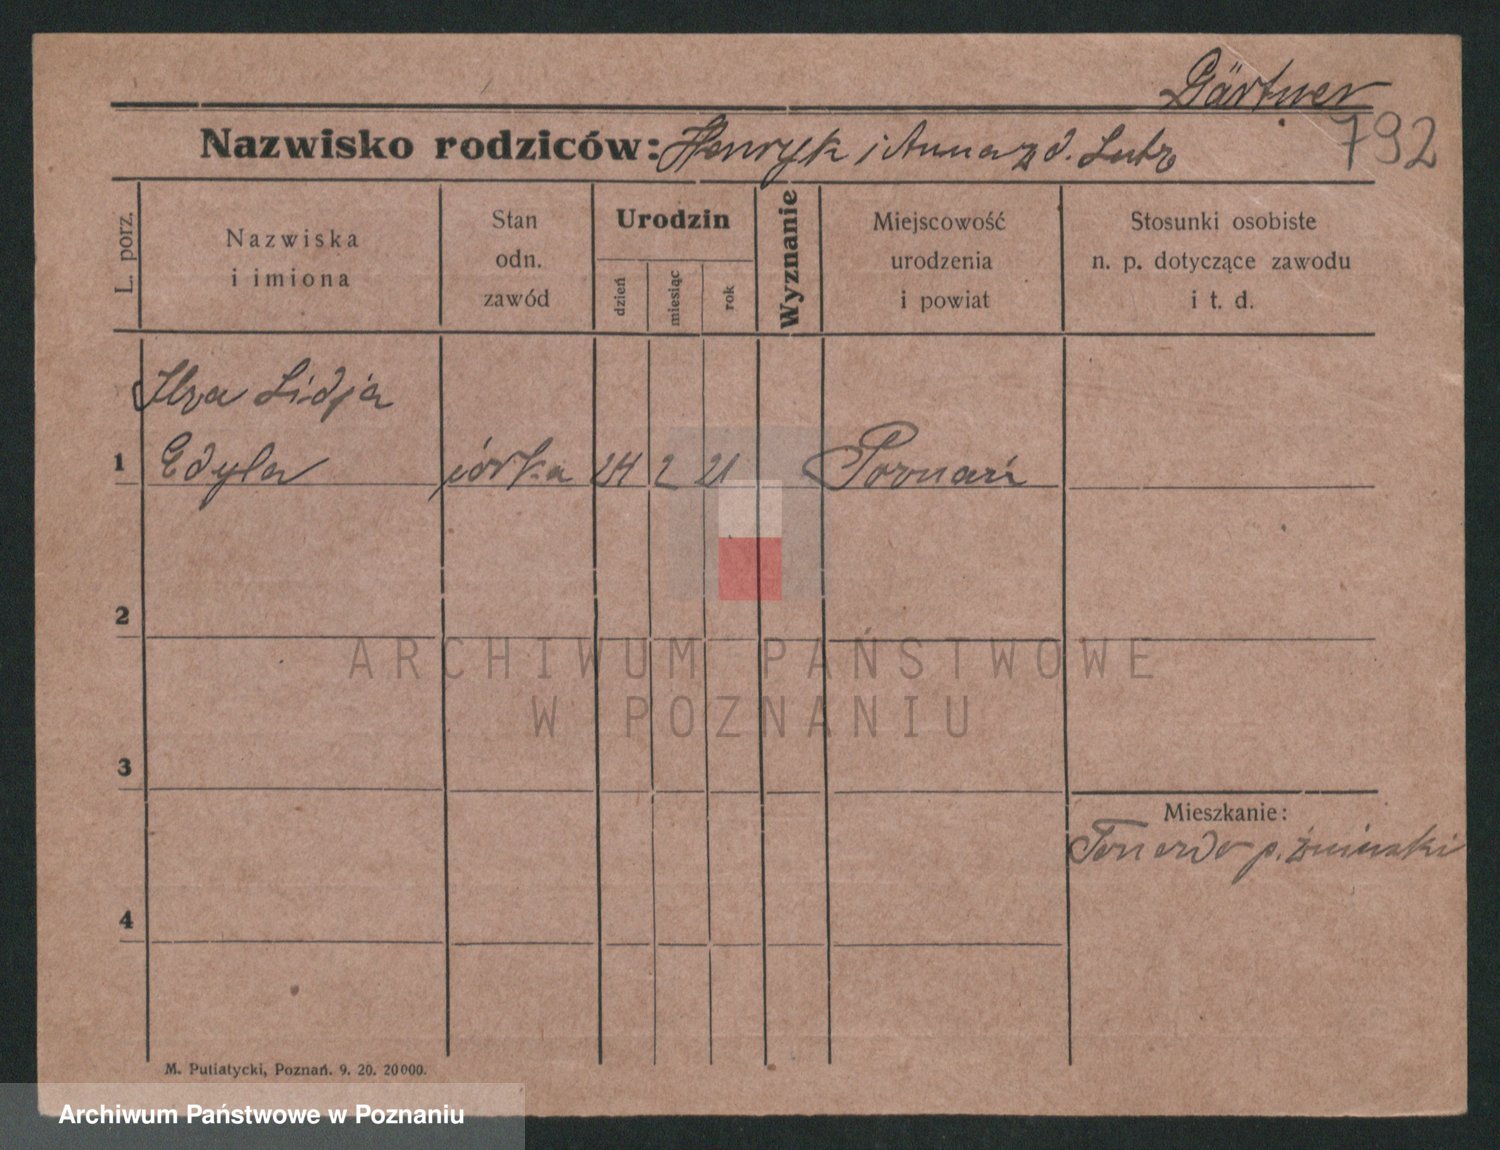 Gärtner
Nazwisko rodziców: Henryk i Anna z d. Lutz
792
L. porz.
Nazwiska
i imiona
Stan
odn.
zawód
Urodzin
dzień
miesiąc
rok
Wyznanie
Miejscowość
urodzenia
i powiat
Stosunki osobiste
n. p. dotyczące zawodu
i t. d.
Ilza Lidja
1 Edyta córka 24 2 21 Poznań
2
ARCHIWUM PAŃSTWOWE
W POZNANIU
3
Mieszkanie:
p. żniński
4
M. Putiatycki, Poznań. 9. 20. 20000.
Archiwum Państwowe w Poznaniu